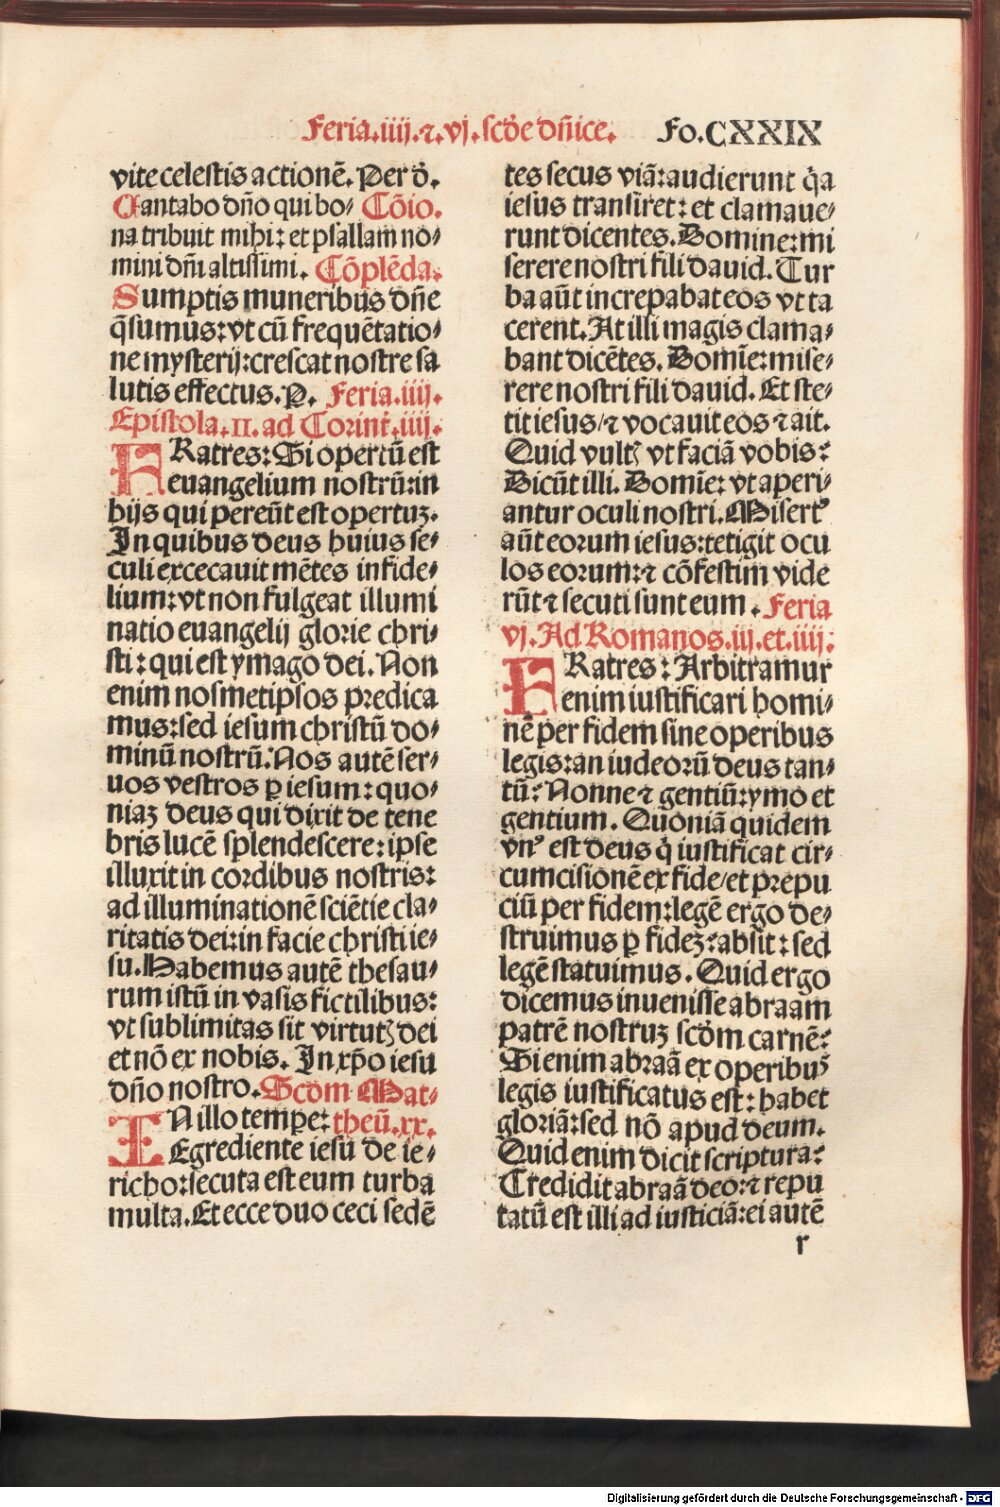 Feria.iiij.⁊.vj.scd̄e dñice. Fo.CXXIX
vite celestis actionē. Per d̄.
Cantabo dño qui bo- Cōio.
na tribuit mihi: et psallam no-
mini dñi altissimi. Cōplēda.
Sumptis muneribus dñe
q̄sumus: vt cū frequētatio-
ne mysterij: crescat nostre sa
lutis effectus. P. Feria.iiij.
Epistola.II. ad Corint̄.iiij.
FRatres: Si opertū est
euangelium nostrū: in
hijs qui pereūt est opertuz.
In quibus deus huius se-
culi excecauit mētes infide-
lium: vt non fulgeat illumi
natio euangelij glorie chri-
sti: qui est ymago dei. Non
enim nosmetipsos predica
mus: sed iesum christū do-
minū nostrū. Nos autē ser-
uos vestros ꝑ iesum: quo-
niaz deus qui dixit de tene
bris lucē splendescere: ipse
illuxit in cordibus nostris:
ad illuminationē sciētie cla-
ritatis dei: in facie christi ie-
su. Habemus autē thesau-
rum istū in vasis fictilibus:
vt sublimitas sit virtutꝭ dei
et nō ex nobis. In xp̄o iesu
dño nostro. Scdm Mat-
INillo tempe: theū.xx.
Egrediente iesu de ie-
richo: secuta est eum turba
multa. Et ecce duo ceci sedē
tes secus viā: audierunt q̄a
iesus transiret: et clamaue-
runt dicentes. Domine: mi
serere nostri fili dauid. Tur
ba aūt increpabat eos vt ta
cerent. At illi magis clama-
bant dicētes. Domīe: mise-
rere nostri fili dauid. Et ste-
tit iesus/⁊ vocauit eos ⁊ ait.
Quid vultꝭ vt faciā vobis?
Dicūt illi. Domīe: vt aperi-
antur oculi nostri. Misertꝰ
aūt eorum iesus: tetigit ocu
los eorum: ⁊ cōfestim vide
rūt ⁊ secuti sunt eum. Feria
vj. Ad Romanos.iij.et.iiij:
FRatres: Arbitramur
enim iustificari homi-
nē per fidem sine operibus
legis: an iudeorū deus tan-
tū? Nonne ⁊ gentiū: ymo et
gentium. Quoniā quidem
vnꝰ est deus q̇ iustificat cir-
cumcisionē ex fide/et prepu
ciū per fidem: legē ergo de-
struimus ꝑ fidez? absit: sed
legē statuimus. Quid ergo
dicemus inuenisse abraam
patrē nostruz scdm carnē?
Si enim abraā ex operibuꝰ
legis iustificatus est: habet
gloriā: sed nō apud deum.
Quid enim dicit scriptura?
Credidit abraā deo: ⁊ repu
tatū est illi ad iusticiā: ei autē
r
Digitalisierung gefördert durch die Deutsche Forschungsgemeinschaft - DFG